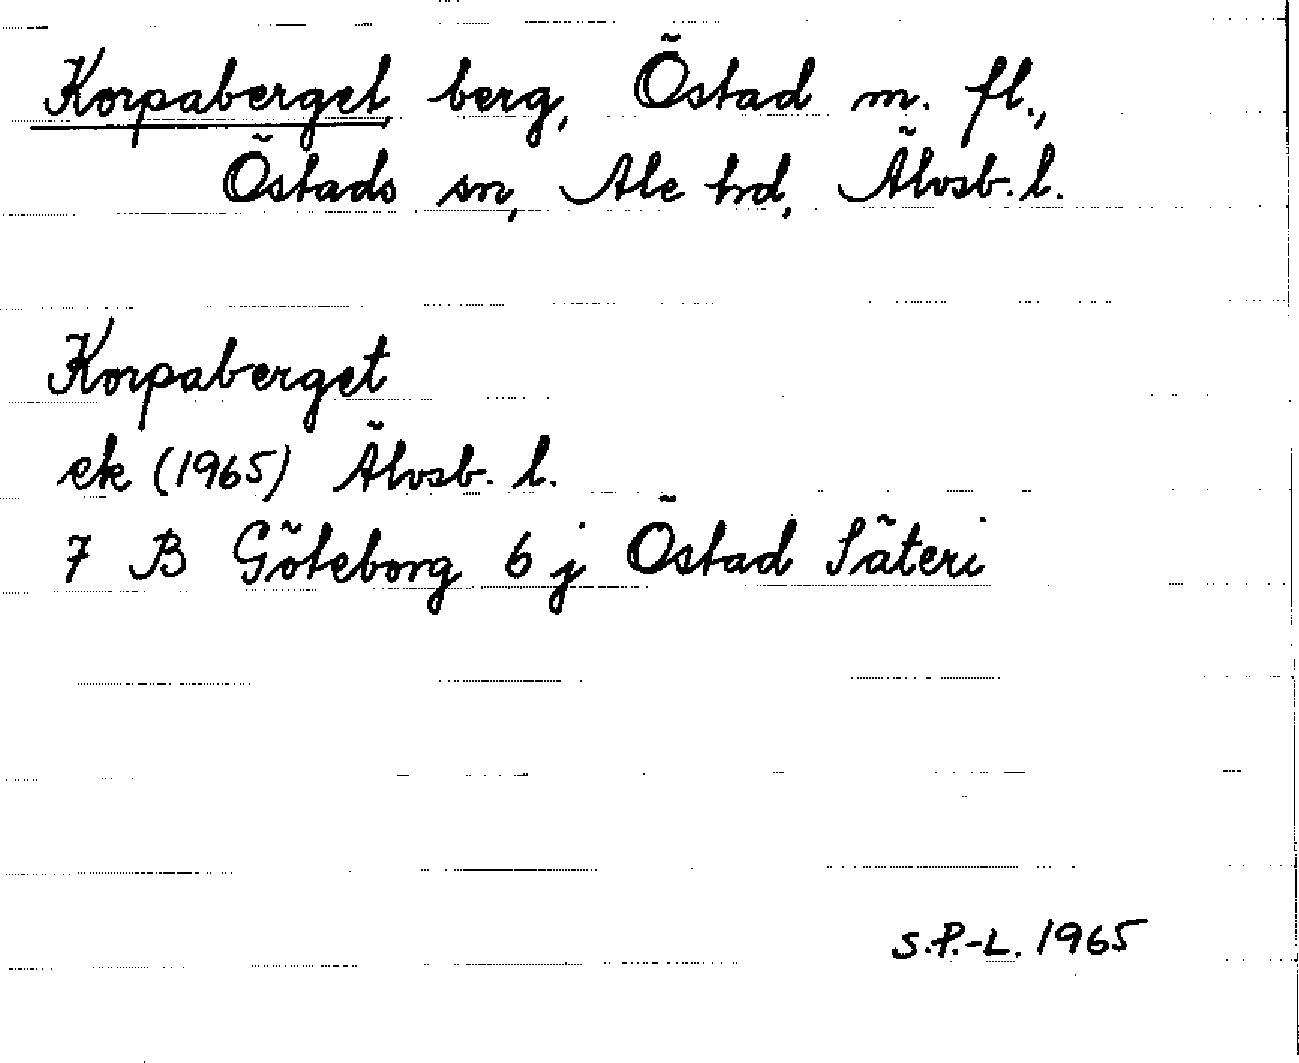 Korpaberget, berg, Östad m. fl.,
Östads sn, Ale hrd, Älvsb. l.
Korpaberget
ek (1965) Älvsb. l.
7 B Göteborg 6 j Östad Säteri
S.P.-L. 1965